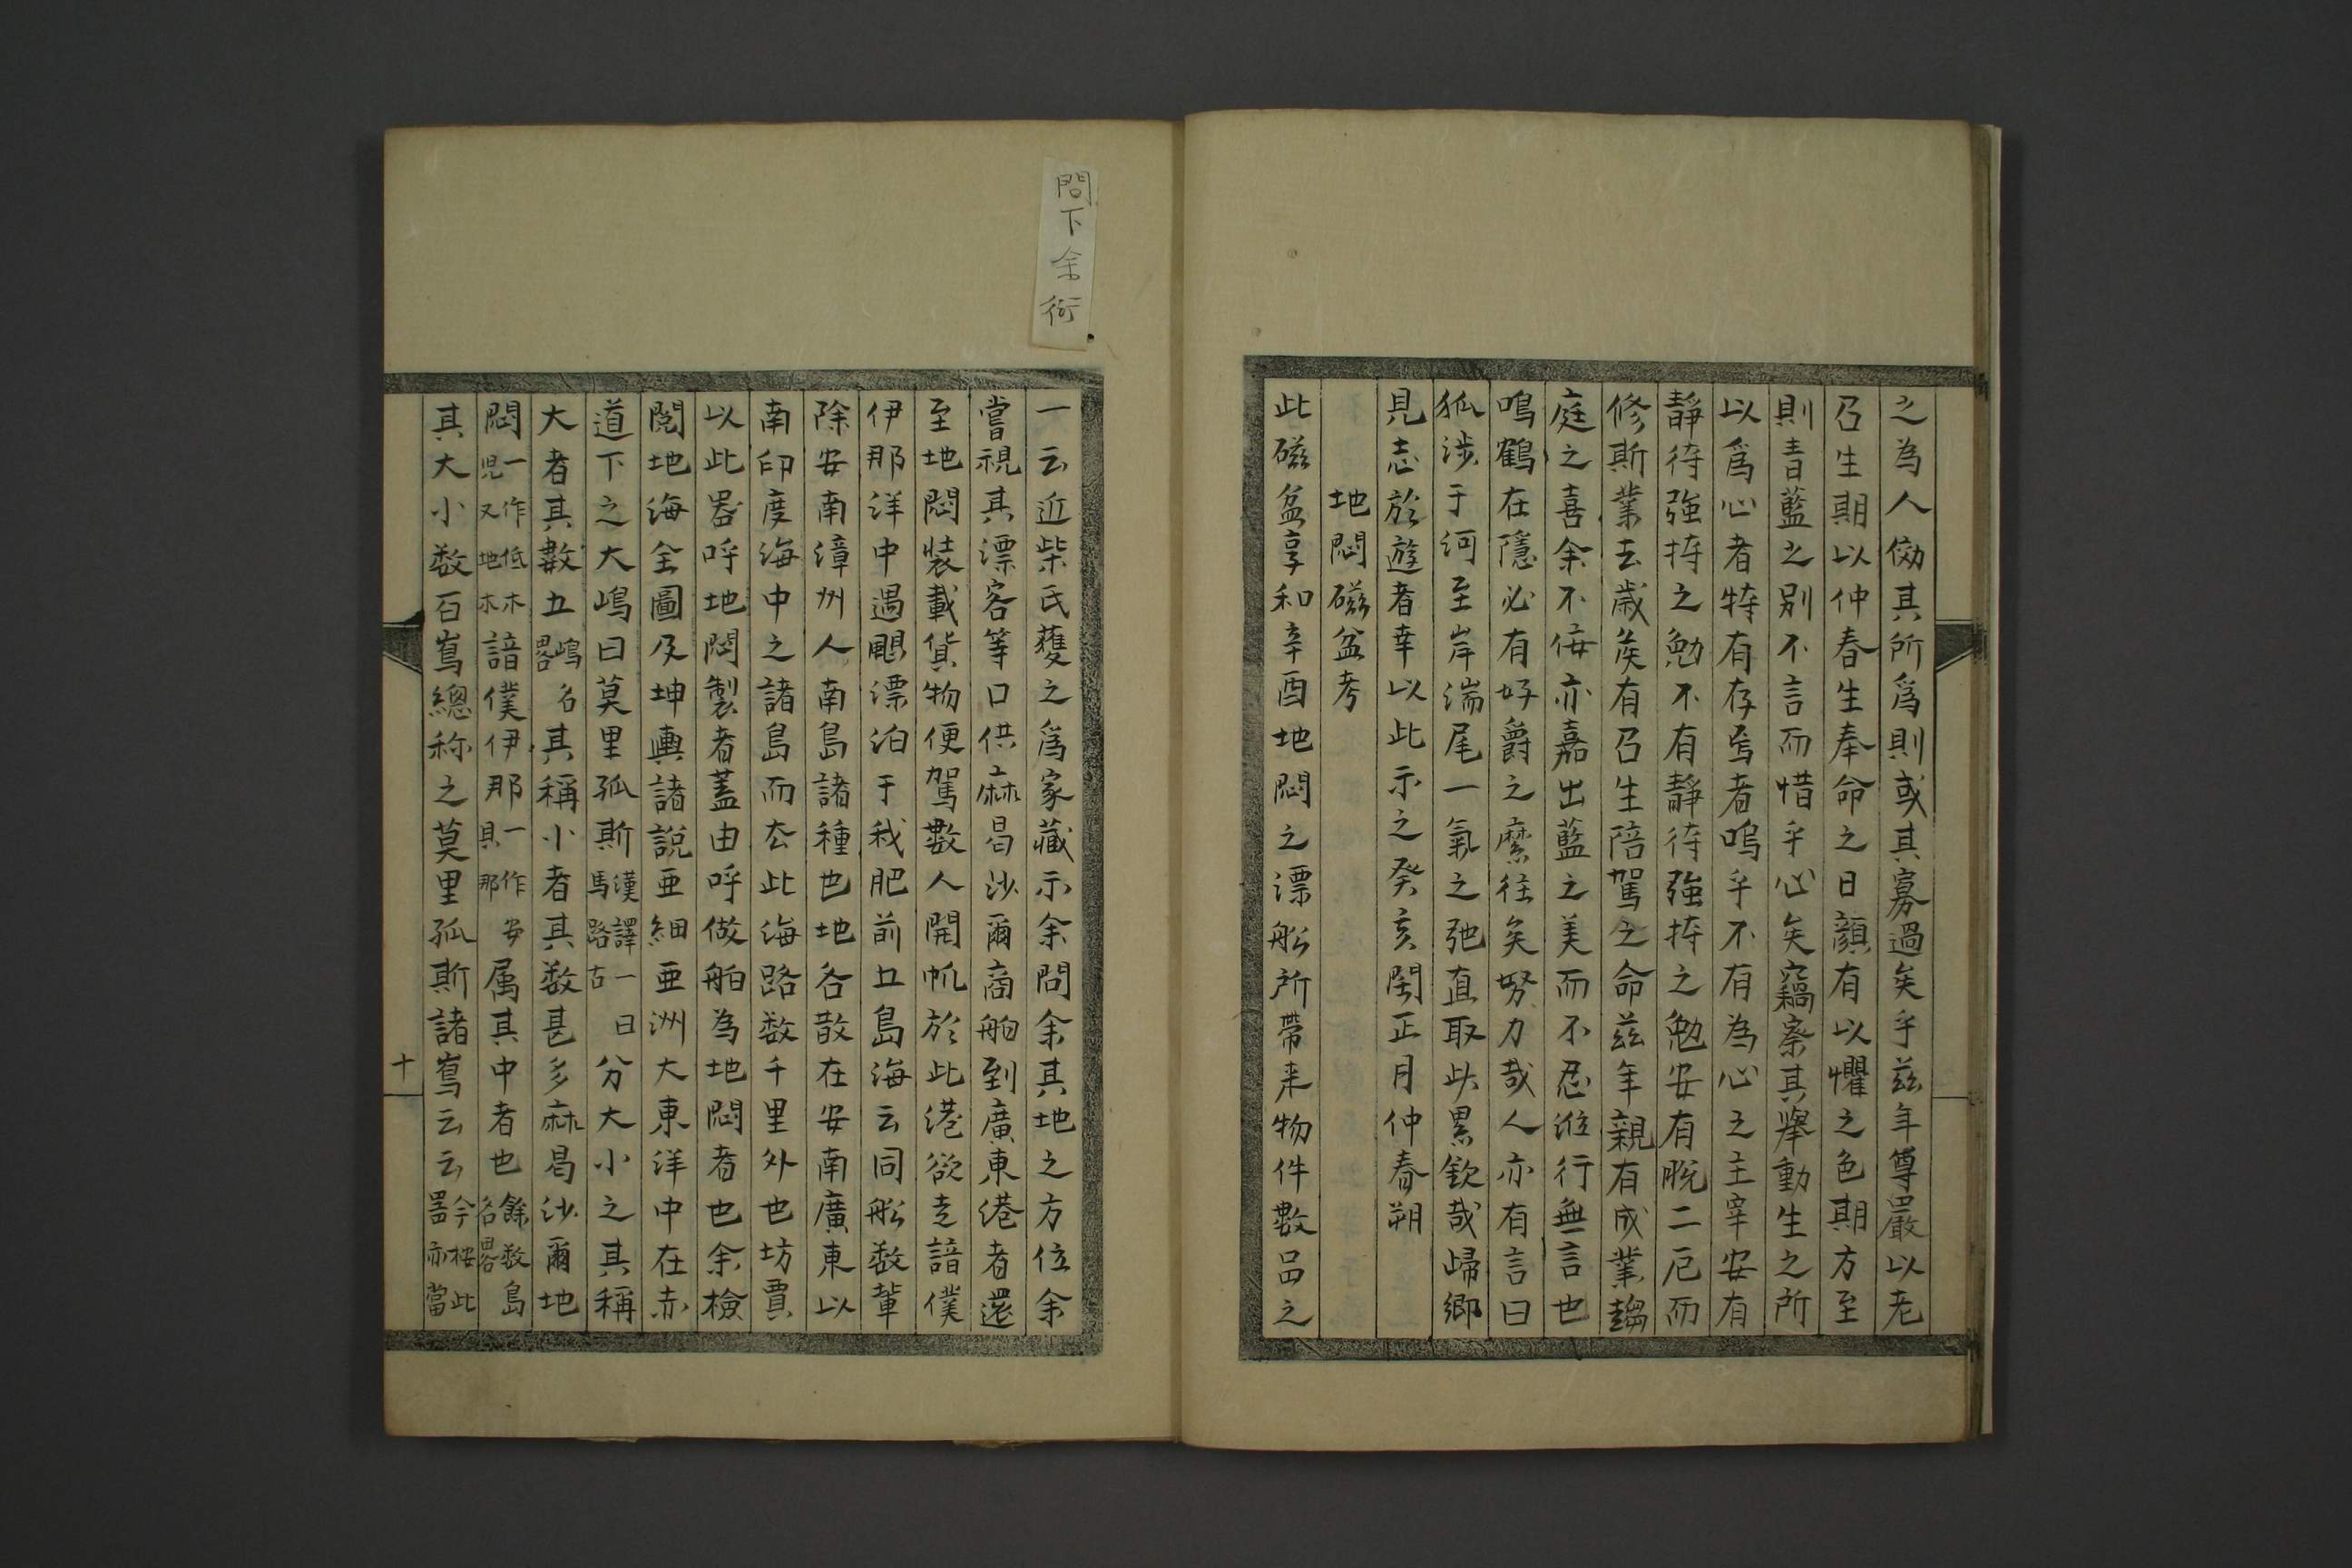 之為人傚其所爲則或其寡過矣乎茲年尊嚴以老
召生期以仲春生奉命之日顔有以懼之色期方至
則青藍之別不言而惜乎心矣竊察其擧動生之所
以爲心者特有存焉者嗚乎不有為心之主宰安有
靜待強持之勉不有靜待強持之勉安有脫二厄而
修斯業去歳矣有召生陪駕之命茲年親有成業趨
庭之喜余不侫亦嘉出藍之美而不忍涖行無言也
鳴鶴在隱必有好爵之縻往矣努力哉人亦有言曰
狐涉于河至岸湍尾一氣之弛直取此累欽哉歸鄉
見志於遊者幸以此示之癸亥閏正月仲春朔
地悶磁盆考
此磁盆享和辛酉地悶之漂舩所帶来物件數品之
問下余衍
一云近柴氏蒦之爲家藏示余問余其地之方位余
嘗視其漂客等口供麻曷沙爾商舶到廣東港者還
至地悶裝載貨物便駕數人開帆於此港欲走諳僕
伊那洋中遇颶漂泊于我肥前五島海云同舩数輩
除安南漳州人南島諸種也地各散在安南廣東以
南印度海中之諸島而厺此海路数千里外也坊賈
以此器呼地悶製者蓋由呼做舶為地悶者也余檢
閲地海全圖及坤輿諸説亜細亜洲大東洋中在赤
道下之大嶋曰莫里孤斯漢譯一曰馬路古分大小之其稱
大者其數五嶋名畧其稱小者其数甚多麻曷沙爾地
悶一作低木児又地木諳僕伊那一作安具那属其中者也餘数島名畧
其大小数百嶌總称之莫里孤斯諸嶌云云今桉此噐亦當
十